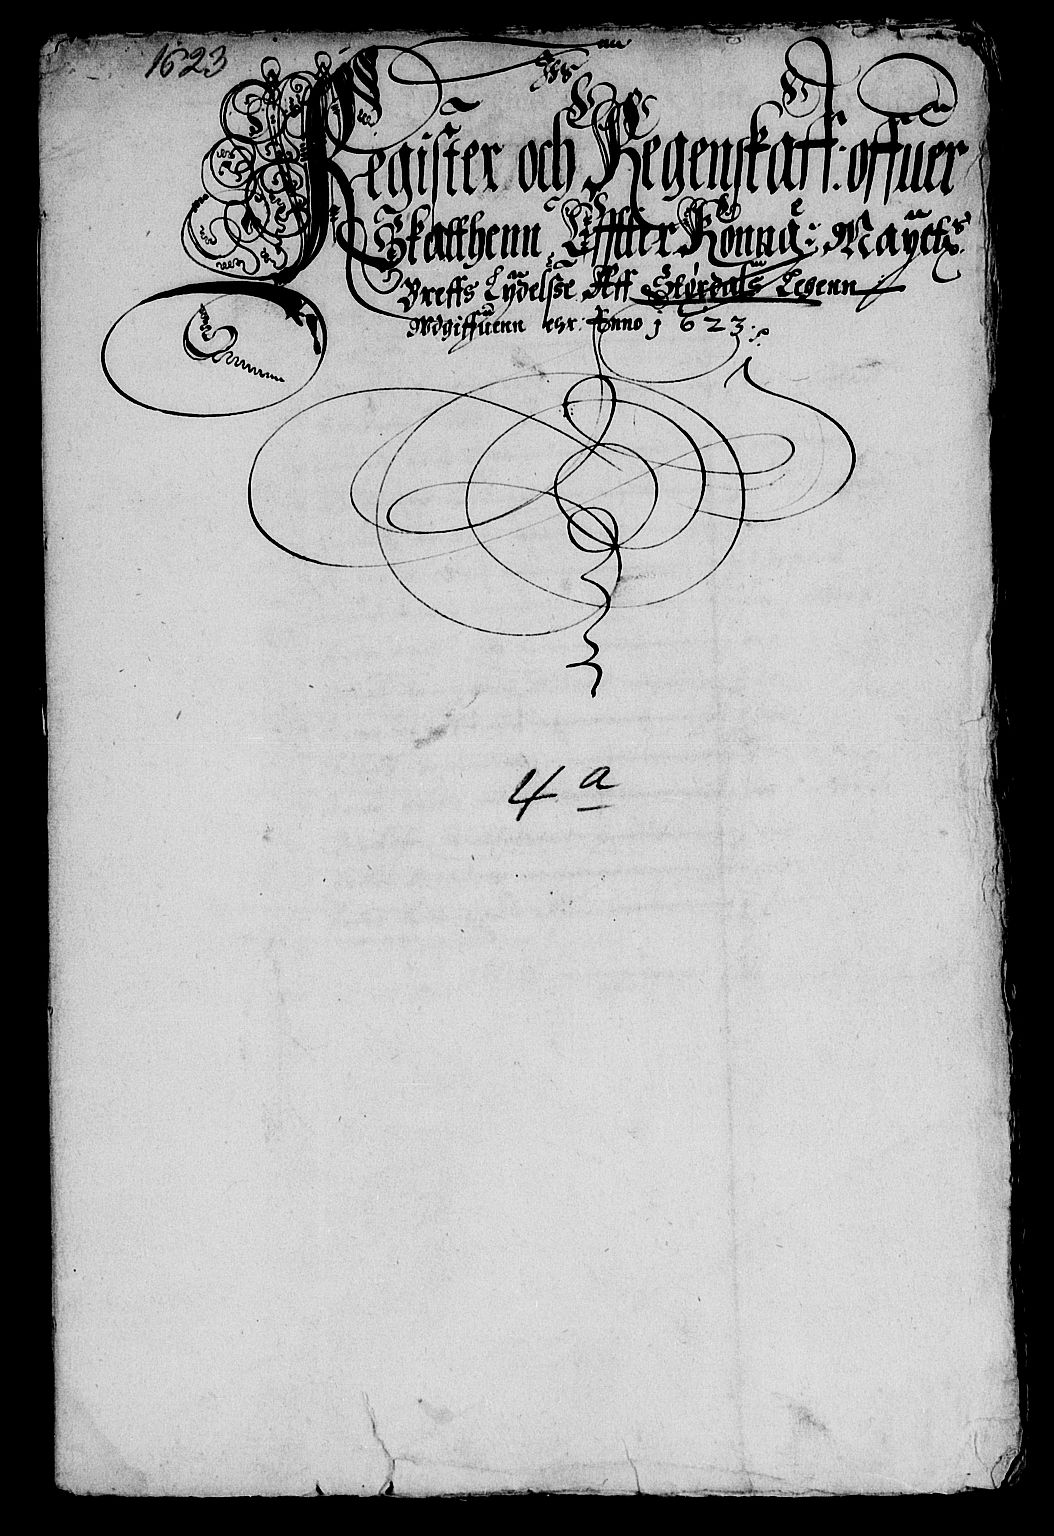 1623
Register och Regenskaff: offuer
Skatthenn Effter Konng: Mayetz
Breffs Lydelsse Aff Størdals Legenn
Udgiffuenn Anno 1623
4 a